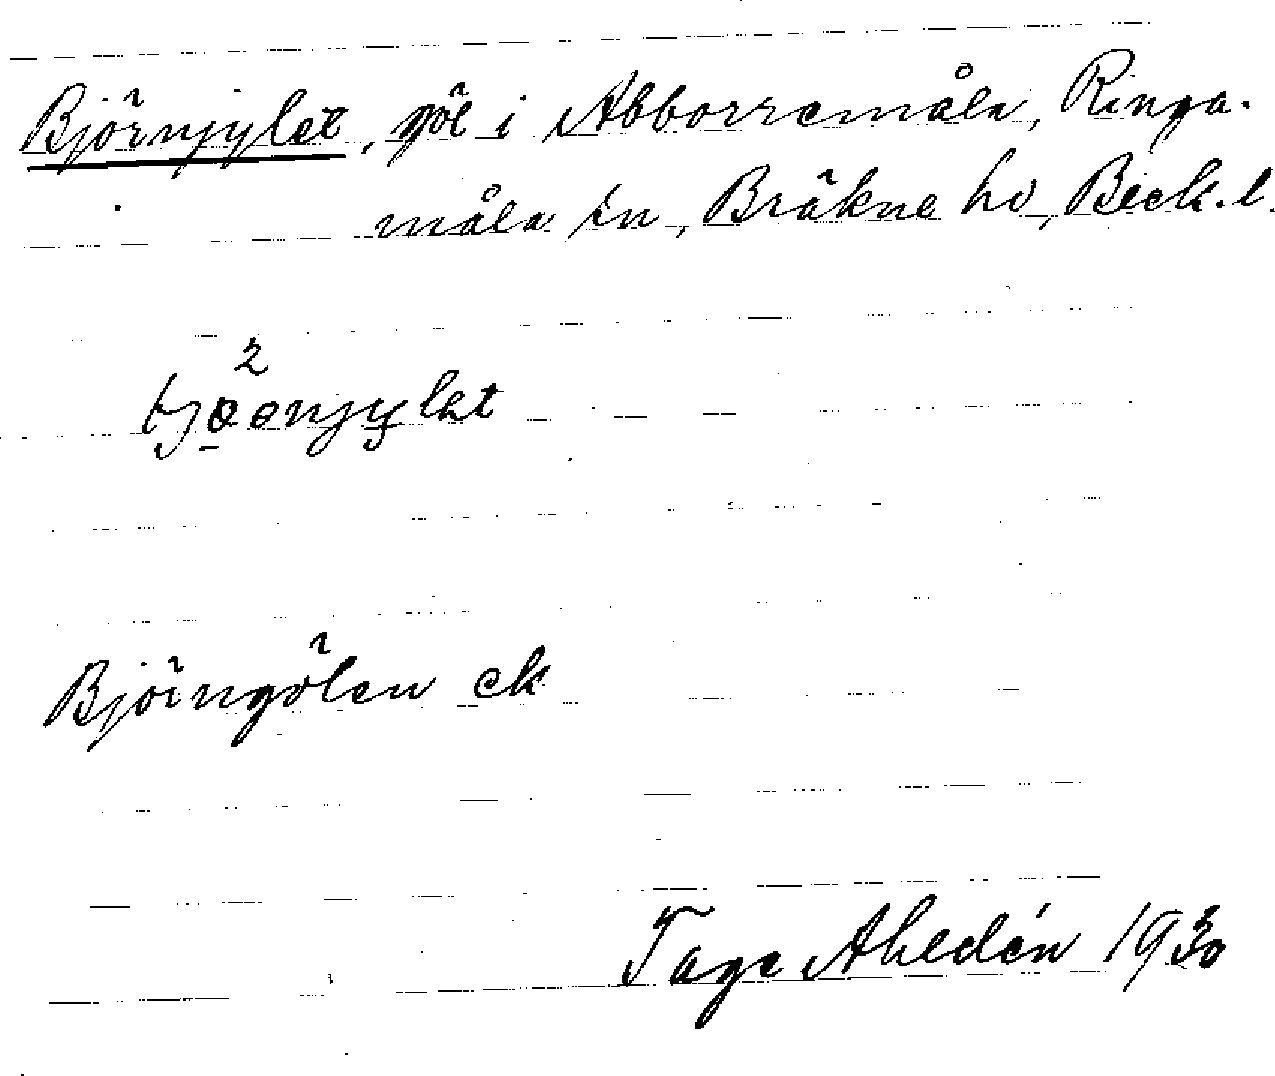 Björnjylet, göl i Abborramåla, Ringa-
måla sn, Bräkne hd, Bleck. l.
2
bjo̲ənjylət
Björngölen ek
Tage Ahldén 1930